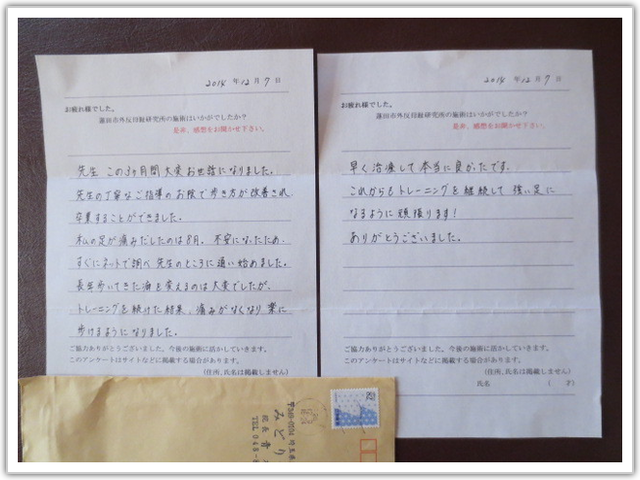 2015 年 12 月 7 日
お疲れ様でした。
蓮田市外反母趾研究所の施術はいかがでしたか？
是非、感想をお聞かせ下さい。
先生 この3ヶ月間大変お世話になりました。
先生の丁寧なご指導のお陰で歩き方が改善され、
卒業することができました。
私の足が痛みだしたのは8月。不安になったため、
すぐにネットで調べ 先生のところに通い始めました。
長年歩いてきた癖を変えるのは大変でしたが、
トレーニングを続けた結果、痛みがなくなり 楽に
歩けるようになりました。
ご協力ありがとうございました。今後の施術に活かしていきます。
このアンケートはサイトなどに掲載する場合があります。
(住所、氏名は掲載しません)
2015 年 12 月 7 日
お疲れ様でした。
蓮田市外反母趾研究所の施術はいかがでしたか？
是非、感想をお聞かせ下さい。
早く治療して本当に良かったです。
これからもトレーニングを継続して 強い足に
なるように頑張ります！
ありがとうございました。
ご協力ありがとうございました。今後の施術に活かしていきます。
このアンケートはサイトなどに掲載する場合があります。
(住所、氏名は掲載しません)
氏名 ( 才)
〒349-0004 埼玉県
みどり
院長 青
TEL 048-